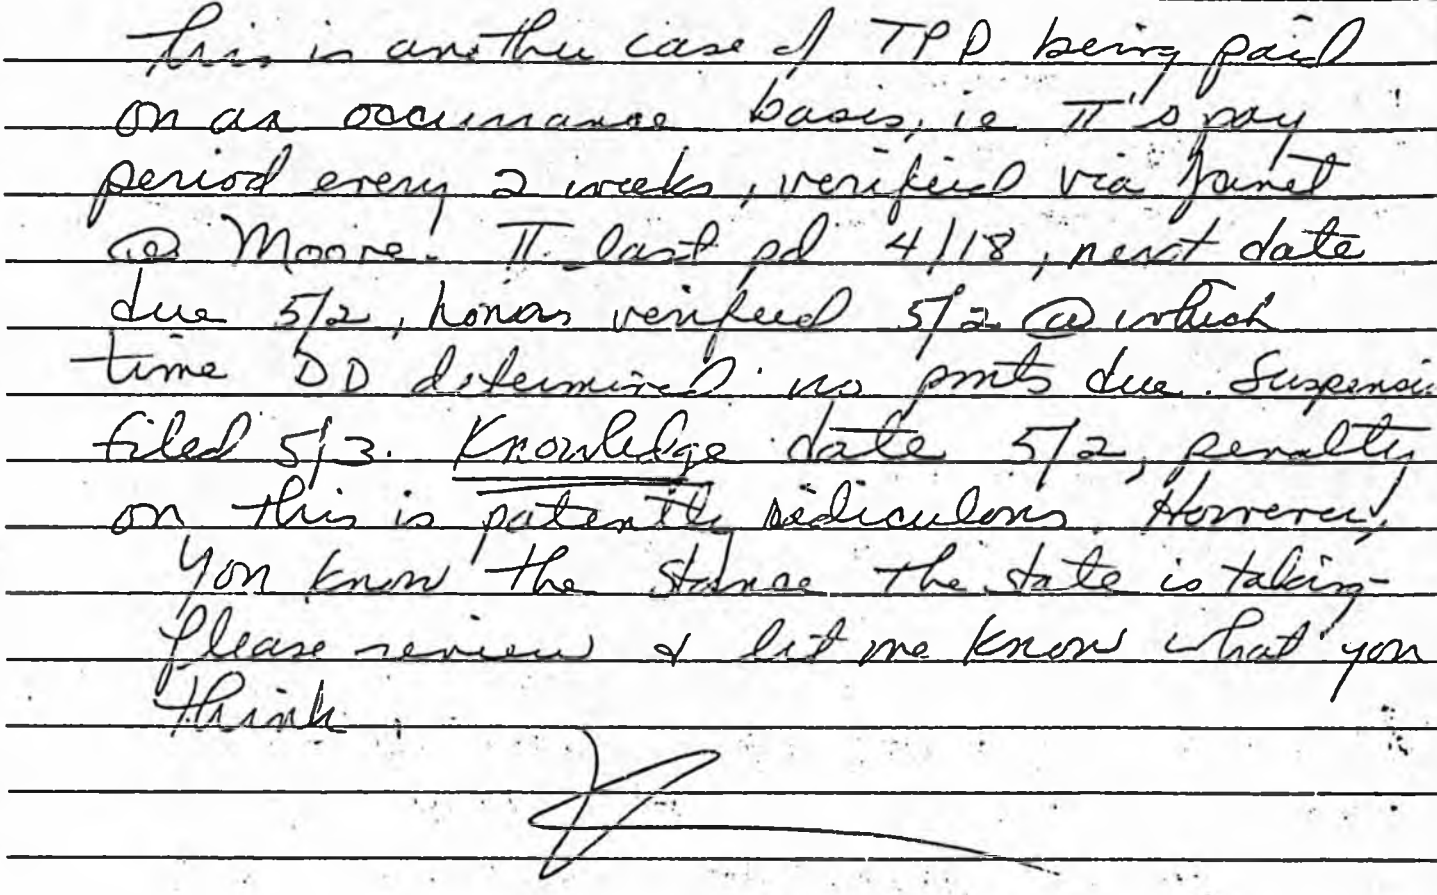 This is another case of TPD being paid
on an occurrance basis, ie π's pay
period every 2 weeks, verified via Janet
@ Moore. π last pd 4/18, next date
due 5/2, hours verified 5/2 @ which
time DD determined no pmts due. Suspensio
filed 5/3. Knowledge date 5/2, penalty
on this is patently rediculous. However,
you know the stance the state is taking-
Please review & let me know what you
think.